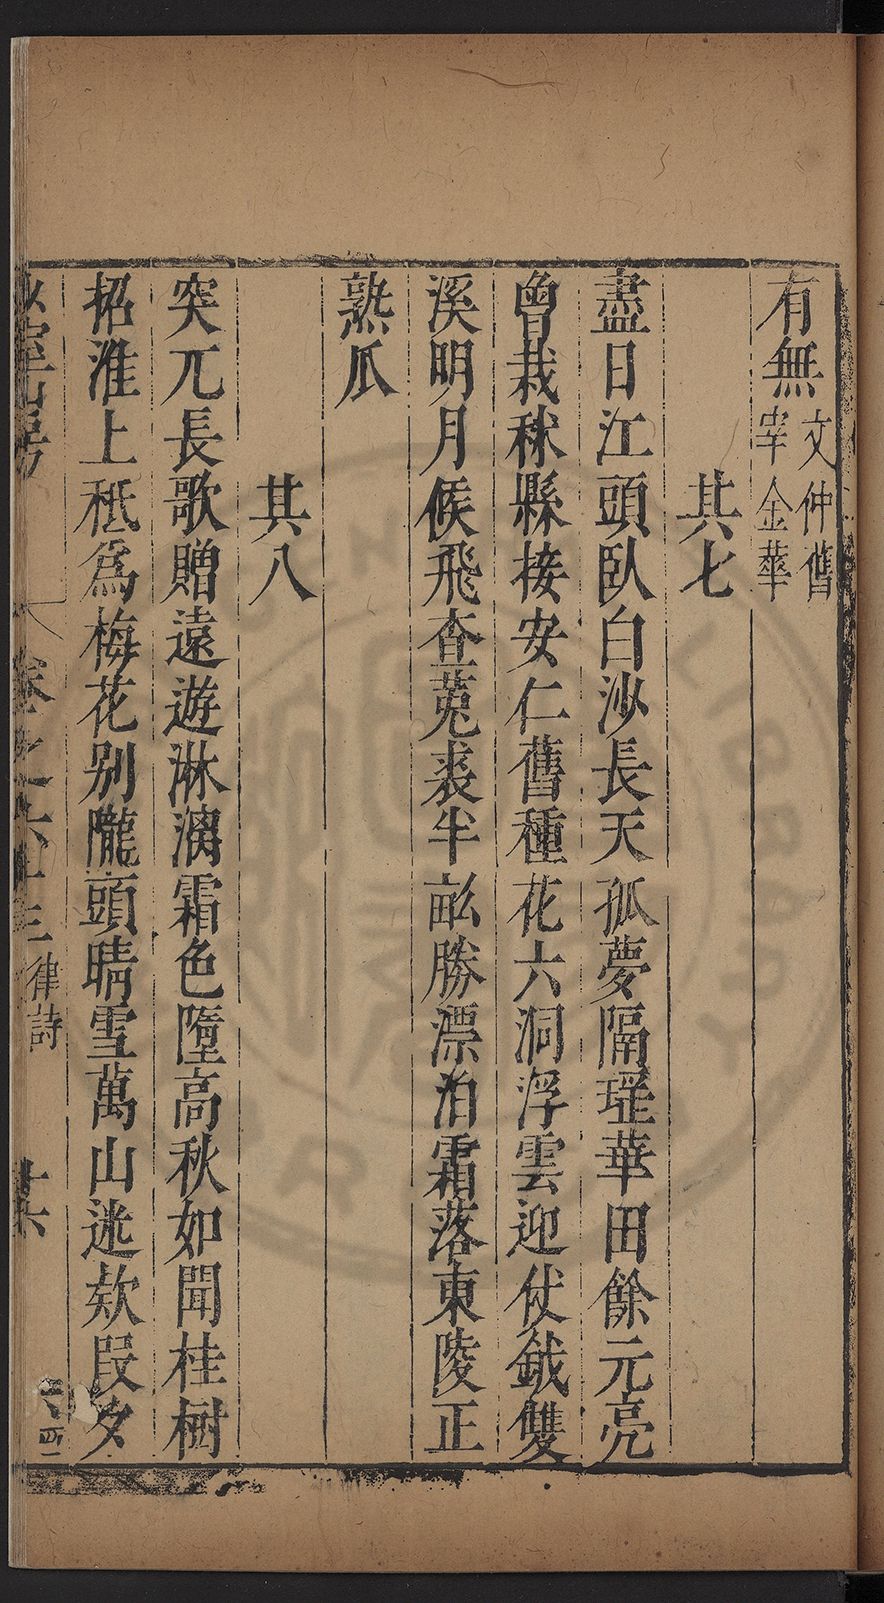 有無文仲舊宰金華
其七
盡日江頭臥白沙長天孤夢隔瑶華田餘元亮
曾栽秫縣接安仁舊種花六洞浮雲迎仗鉞雙
溪明月候飛查菟裘半畝勝漂泊霜落東陵正
熟瓜
其八
突兀長歌贈遠遊淋漓霜色墮高秋如聞桂樹
招淮上秪爲梅花别隴頭晴雪萬山迷欸叚夕
山房
卷之六十三律詩